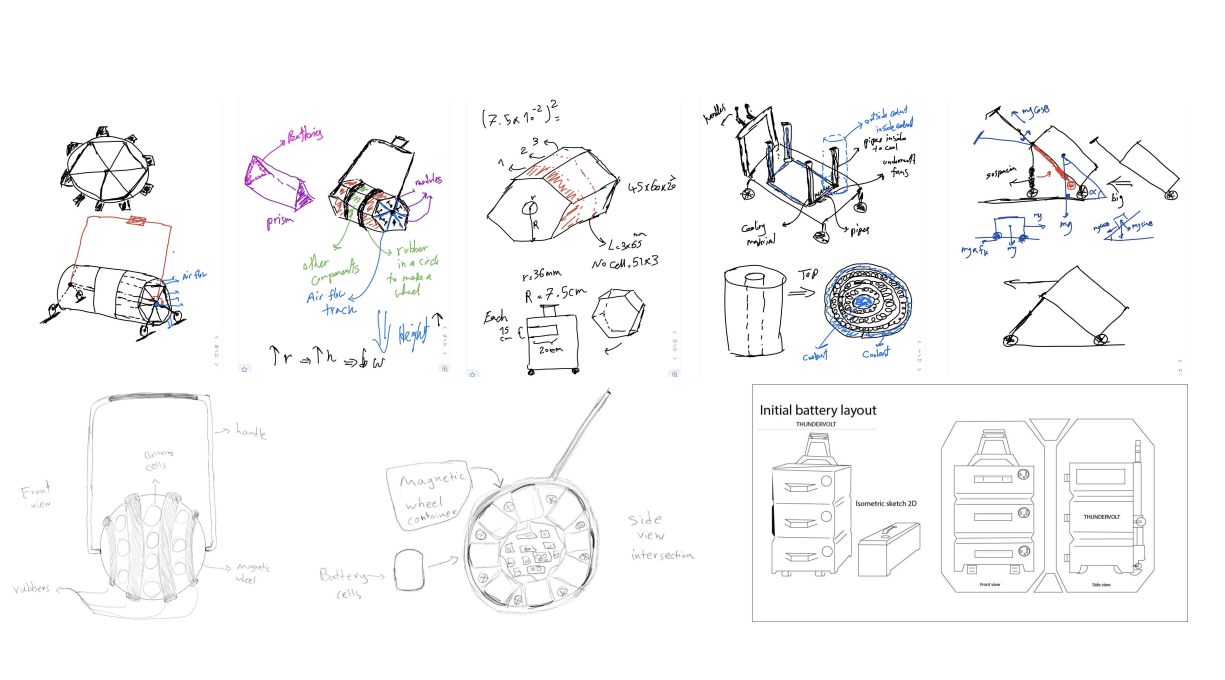 Air flow
Batteries
prism
modules
other
components
rubber
in a circle
to make a
wheel
Air flow
track
Height ↑
↑r ⇒ ↑h ⇒
(7.5x10⁻²)² =
1
2
3
r
R
45x60x20
L = 3x65 mm
No cell, 51x3
r = 36mm
R = 7.5cm
Each
15
cm
20cm
handles
outside coolant
inside coolant
pipes inside
to cool
underneath
fans
Cooling
material
pipes
Top
Coolant
Coolant
mg cosB
big
mg
α
mg
mg
mg sinB
handle
Battery
cells
Front
view
magnetic
wheel
rubbers
Magnetic
wheel
container
Battery
cells
side
view
intersection
Initial battery layout
THUNDERVOLT
Isometric sketch 2D
THUNDERVOLT
Front view
Side view